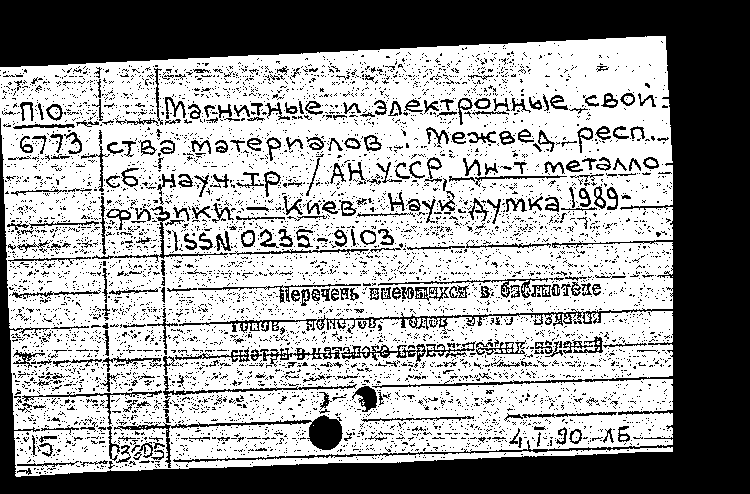 П10 Магнитные и электронные свой-
6773 ства материалов : Межвед. респ.
сб. науч. тр. / АН УССР, Ин-т металло-
физики. — Киев : Наук. думка, 1989-
ISSN 0235-9103.
Перечень имеющихся в библиотеке
томов, номеров, годов этого издания
смотри в каталоге периодических изданий
15 4.I.90 ЛБ